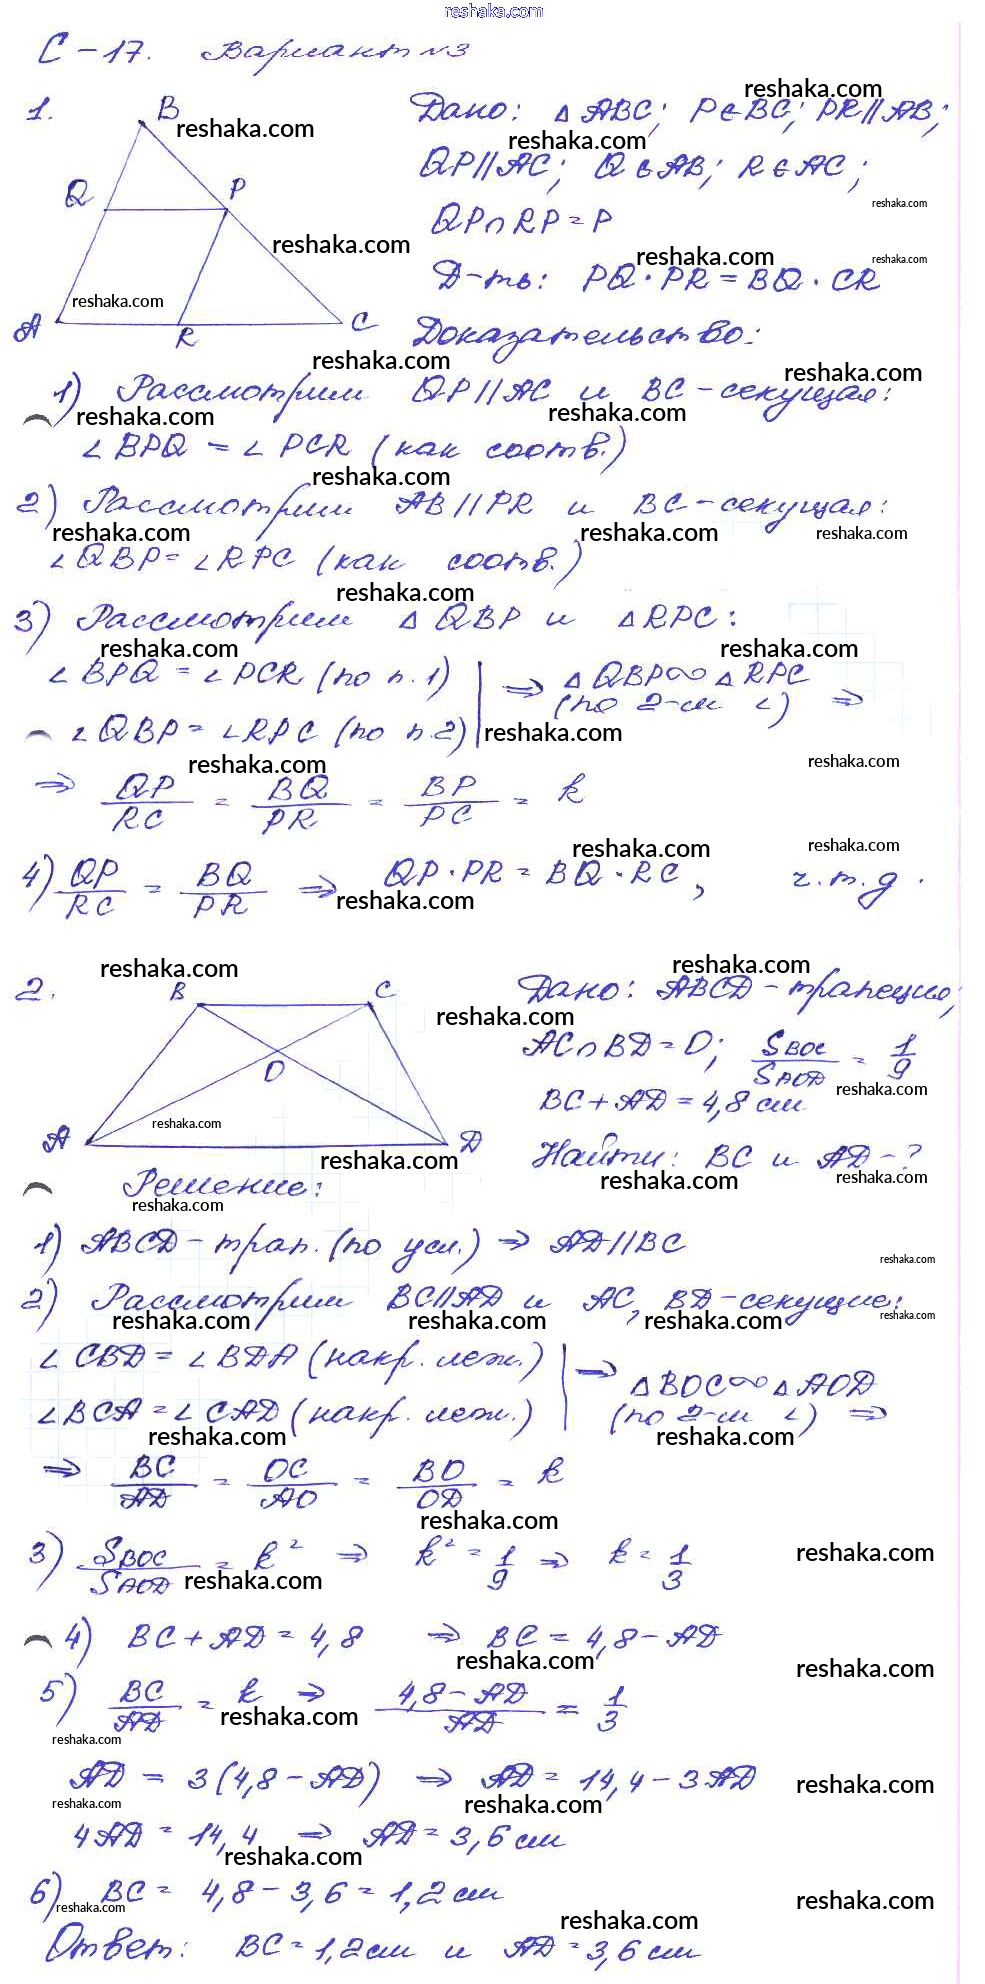 reshaka.com
С-17. Вариант №3
1.
B
Q
P
A
R
C
Дано: △ABC; P∈BC; PR∥AB;
QP∥AC; Q∈AB; R∈AC;
QP∩RP=P
Д-ть: PQ·PR=BQ·CR
Доказательство:
1) Рассмотрим QP∥AC и BC-секущая:
∠BPQ = ∠PCR (как соотв.)
2) Рассмотрим AB∥PR и BC-секущая:
∠QBP=∠RPC (как соотв.)
3) Рассмотрим △QBP и △RPC:
∠BPQ = ∠PCR (по п.1) | ⇒ △QBP∞△RPC
∠QBP=∠RPC (по п.2) | (по 2-м ∠) ⇒
⇒ QP/RC = BQ/PR = BP/PC = k
4) QP/RC = BQ/PR ⇒ QP·PR=BQ·RC, ч.т.д.
2.
B
C
O
A
D
Дано: ABCD-трапеция;
AC∩BD=O; S BOC/S AOD = 1/9
BC+AD=4,8 см
Найти: BC и AD-?
Решение:
1) ABCD-трап. (по усл.) ⇒ AD∥BC
2) Рассмотрим BC∥AD и AC, BD-секущие:
∠CBD=∠BDA (накр. леж.) | ⇒ △BOC∞△AOD
∠BCA=∠CAD (накр. леж.) | (по 2-м ∠) ⇒
⇒ BC/AD = OC/AO = BO/OD = k
3) S BOC/S AOD = k² ⇒ k² = 1/9 ⇒ k = 1/3
4) BC+AD=4,8 ⇒ BC=4,8-AD
5) BC/AD = k ⇒ (4,8-AD)/AD = 1/3
AD = 3(4,8-AD) ⇒ AD=14,4-3AD
4AD=14,4 ⇒ AD=3,6 см
6) BC= 4,8-3,6=1,2 см
Ответ: BC=1,2 см и AD=3,6 см